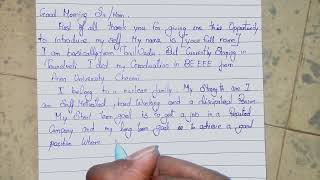 Good Morning Sir/Mam.
First of all thank you for giving me this Opportunity
to introduce my self. My name is (your full name)
I am basically from Tamil Nadu. But Currently Staying in
I did my Graduation in BE EEE from
Anna University Chennai.
I belong to a nuclear family. My Strength are I
am Self Motivated, Hard Working and a disciplined Person
My Short term goal is to get a job in a Reputed
Company and my long term goal is to achieve a good
position where